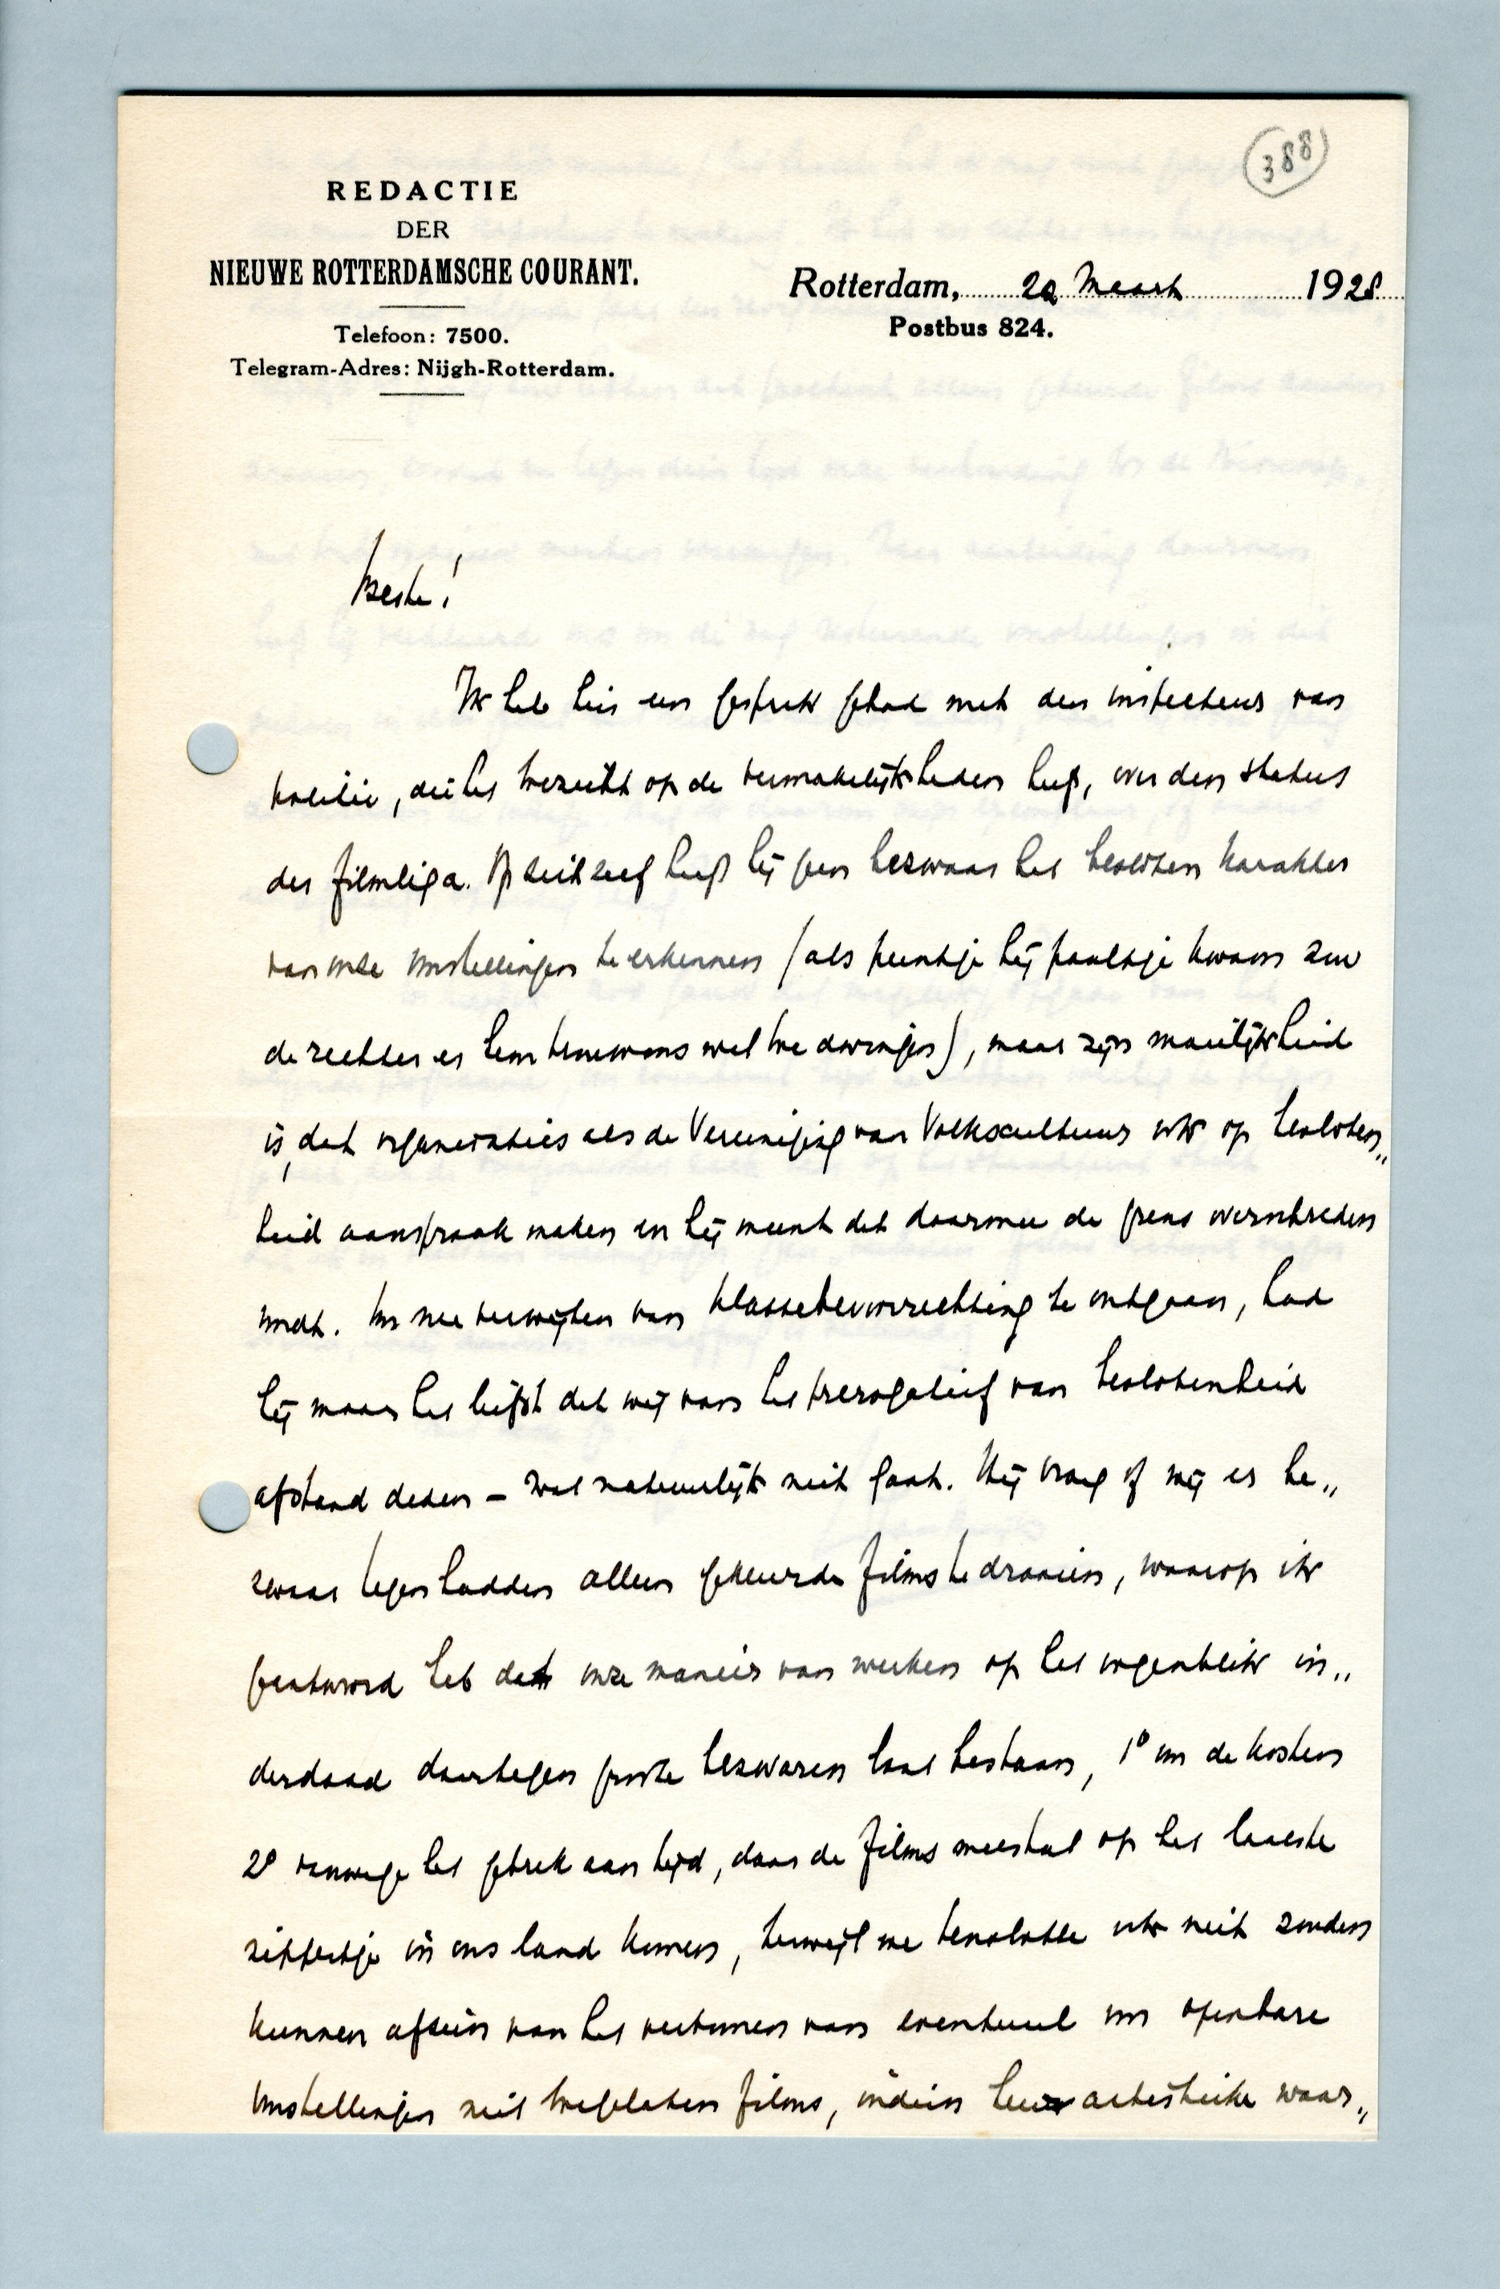 388
REDACTIE
DER
NIEUWE ROTTERDAMSCHE COURANT.
Telefoon: 7500.
Telegram-Adres: Nijgh-Rotterdam.
Rotterdam, 20 Maart 1928
Postbus 824.
Beste!
Ik heb hier een gesprek gehad met den inspecteur van
politie, die het toezicht op de vermakelijkheden heeft, over den status
der filmliga. Op zich zelf heeft hij geen bezwaar het besloten karakter
van onze voorstellingen te erkennen (als puntje bij paaltje kwam zou
de rechter er hem trouwens wel toe dwingen), maar zijn moeilijkheid
is, dat organisaties als de Vereeniging van Volkscultuur ook op besloten„
heid aanspraak maken en hij meent dat daarmee de grens overschreden
wordt. Om nu verwijten van klassebevoorrechting te ontgaan, had
hij maar het liefst dat wij van het prerogatief van beslotenheid
afstand deden – wat natuurlijk niet gaat. Hij vroeg of wij er be„
zwaar tegen hadden alleen gekeurde films te draaien, waarop ik
geantwoord heb dat onze manier van werken op het oogenblik in„
derdaad daartegen groote bezwaren laat bestaan, 1º om de kosten
2º vanwege het gebrek aan tijd, daar de films meestal op het laatste
nippertje in ons land komen, terwijl we tenslotte ook niet zouden
kunnen afzien van het vertoonen van eventueel voor openbare
voorstellingen niet toegelaten films, indien hun artistieke waar„